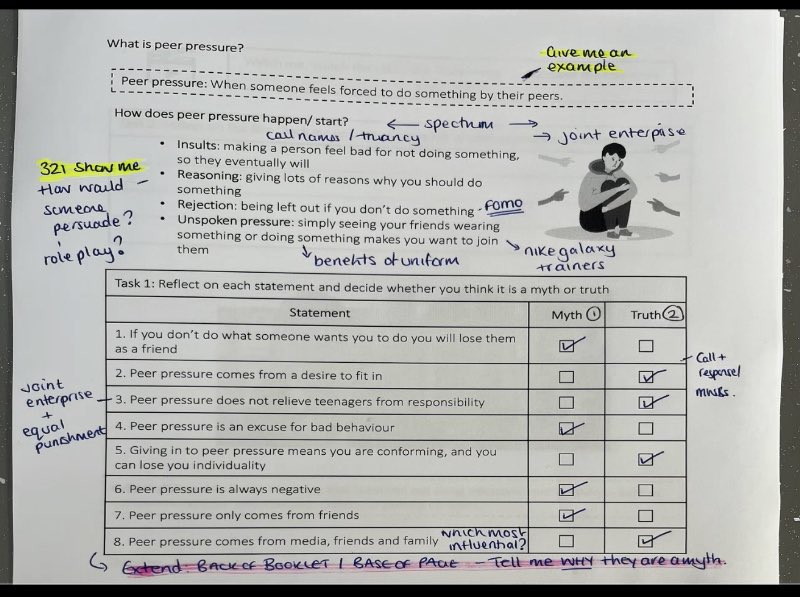 What is peer pressure?
Give me an
example
Peer pressure: When someone feels forced to do something by their peers.
How does peer pressure happen/ start?
← spectrum →
call names / truancy
→ joint enterprise
• Insults: making a person feel bad for not doing something,
so they eventually will
• Reasoning: giving lots of reasons why you should do
something
• Rejection: being left out if you don't do something - FOMO
• Unspoken pressure: simply seeing your friends wearing
something or doing something makes you want to join
them
benefits of uniform
nike galaxy
trainers
321 Show me
How would
someone
persuade?
role play?
Task 1: Reflect on each statement and decide whether you think it is a myth or truth
Statement Myth ① Truth ②
1. If you don't do what someone wants you to do you will lose them
as a friend
2. Peer pressure comes from a desire to fit in
3. Peer pressure does not relieve teenagers from responsibility
4. Peer pressure is an excuse for bad behaviour
5. Giving in to peer pressure means you are conforming, and you
can lose you individuality
6. Peer pressure is always negative
7. Peer pressure only comes from friends
8. Peer pressure comes from media, friends and family which most
influential?
Call +
response/
MWBs.
joint
enterprise
+
equal
punishment
Extend: BACK OF BOOKLET / BASE OF PAGE - Tell me WHY they are a myth.